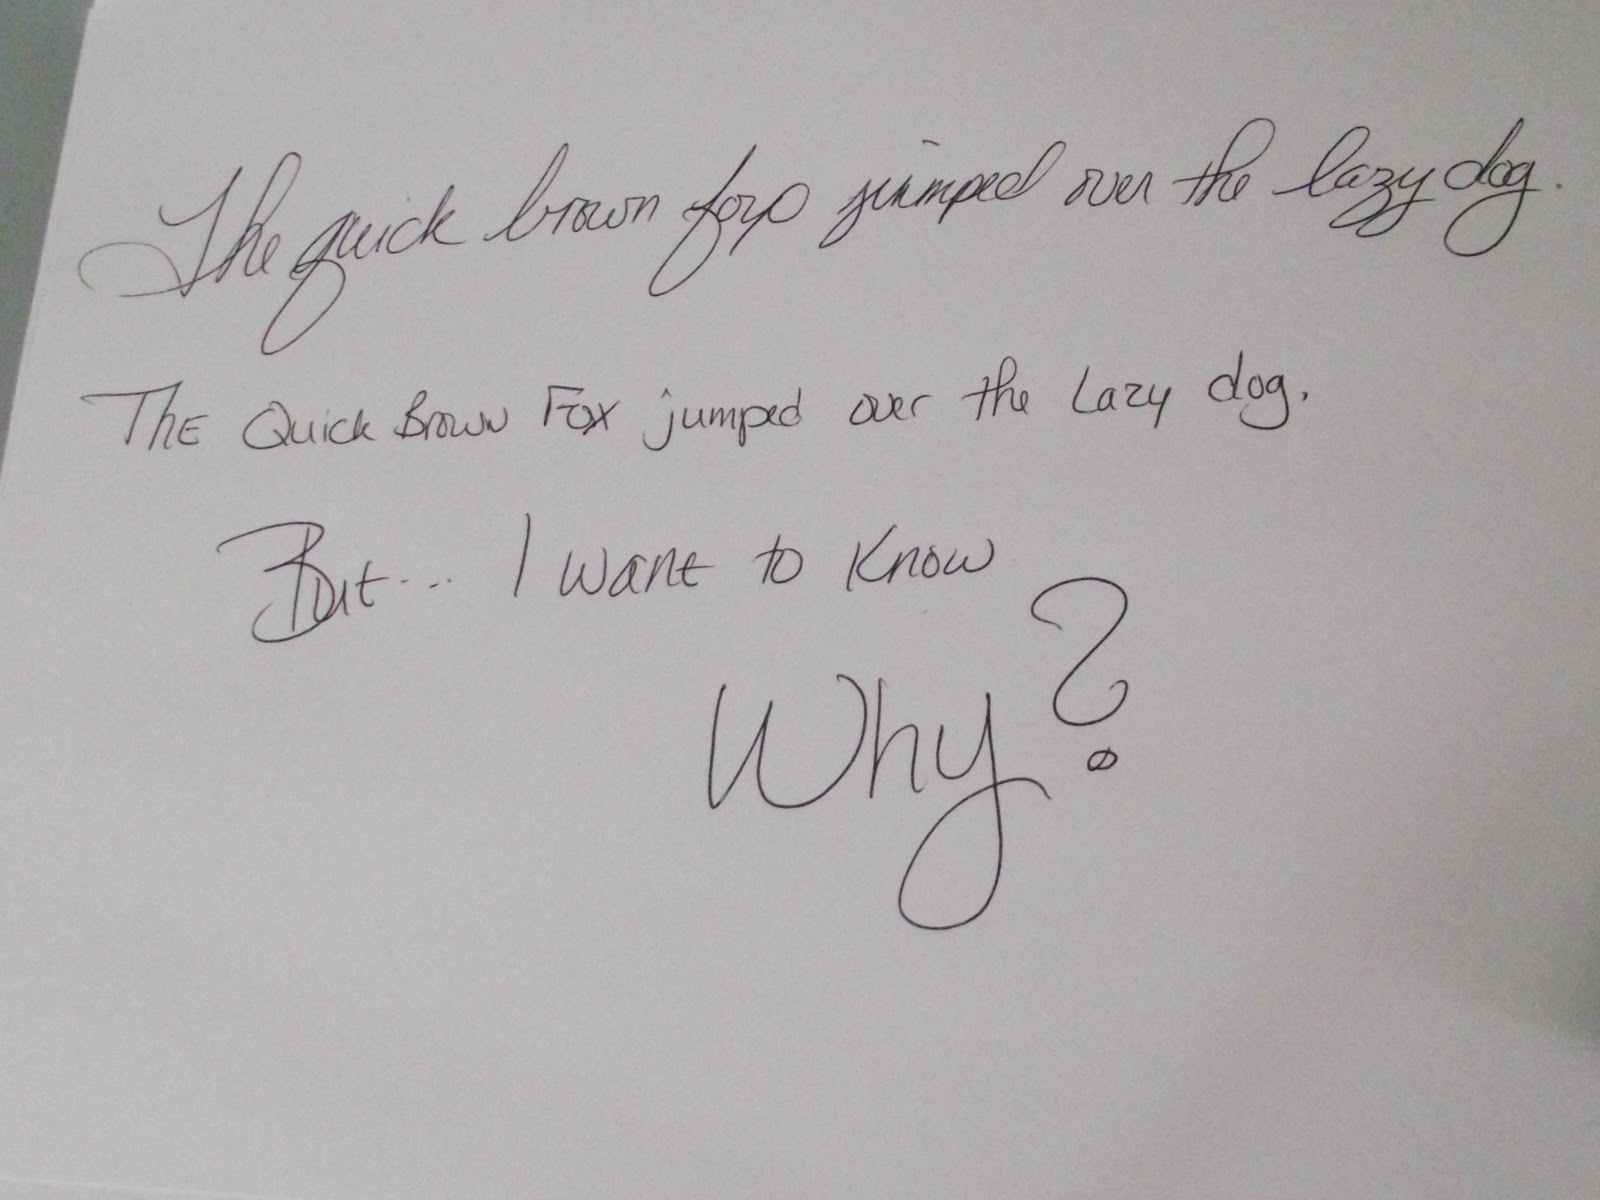 The quick brown fox jumped over the lazy dog.
The Quick Brown Fox jumped over the Lazy dog.
But... I want to know
Why?